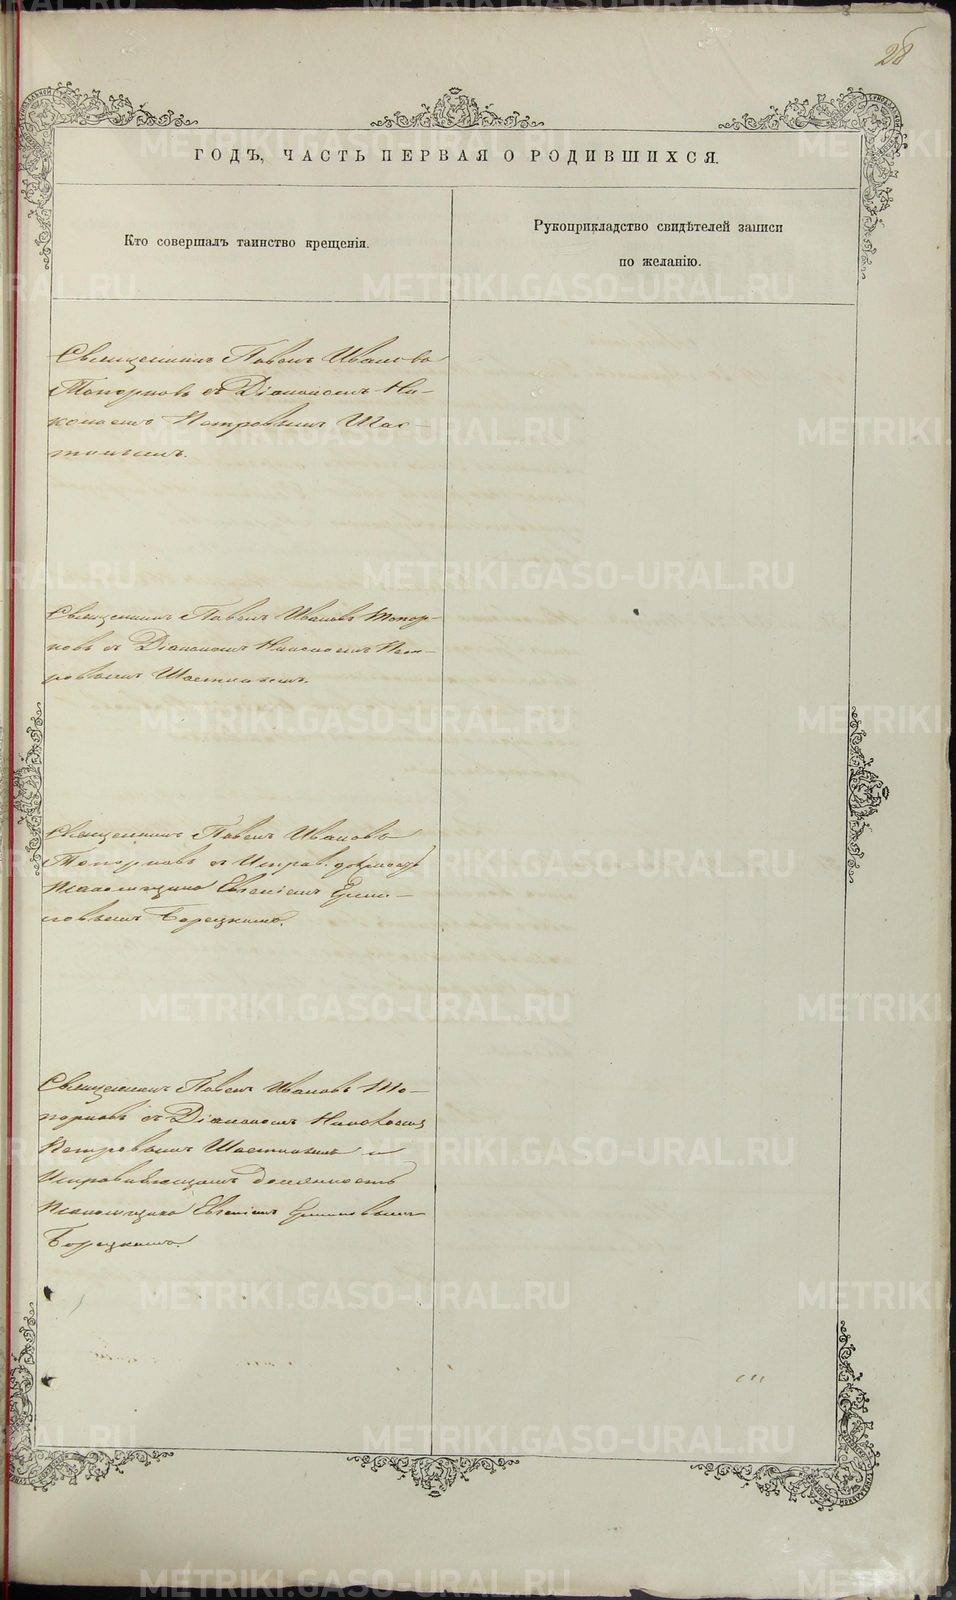 28
ГОДЪ, ЧАСТЬ ПЕРВАЯ О РОДИВШИХСЯ.
Кто совершалъ таинство крещенія.
Рукоприкладство свидѣтелей записи
по желанію.
Священникъ Павелъ Ивановъ
Топорковъ съ Діакономъ Ни-
колаемъ Петровымъ Шас-
тинымъ.
Священникъ Павелъ Ивановъ Топор-
ковъ съ Діакономъ Николаемъ Пет-
ровымъ
Священникъ Павелъ Ивановъ
Топорковъ съ Исправ. должность
Псаломщика Евгеніемъ Ерми-
ловымъ Борецкимъ.
Священникъ Павелъ Ивановъ То-
порковъ съ Діакономъ Николаемъ
Петровымъ и
Исправляющимъ должность
Псаломщика Евгеніемъ Ермиловымъ
Борецкимъ.
METRIKI.GASO-URAL.RU